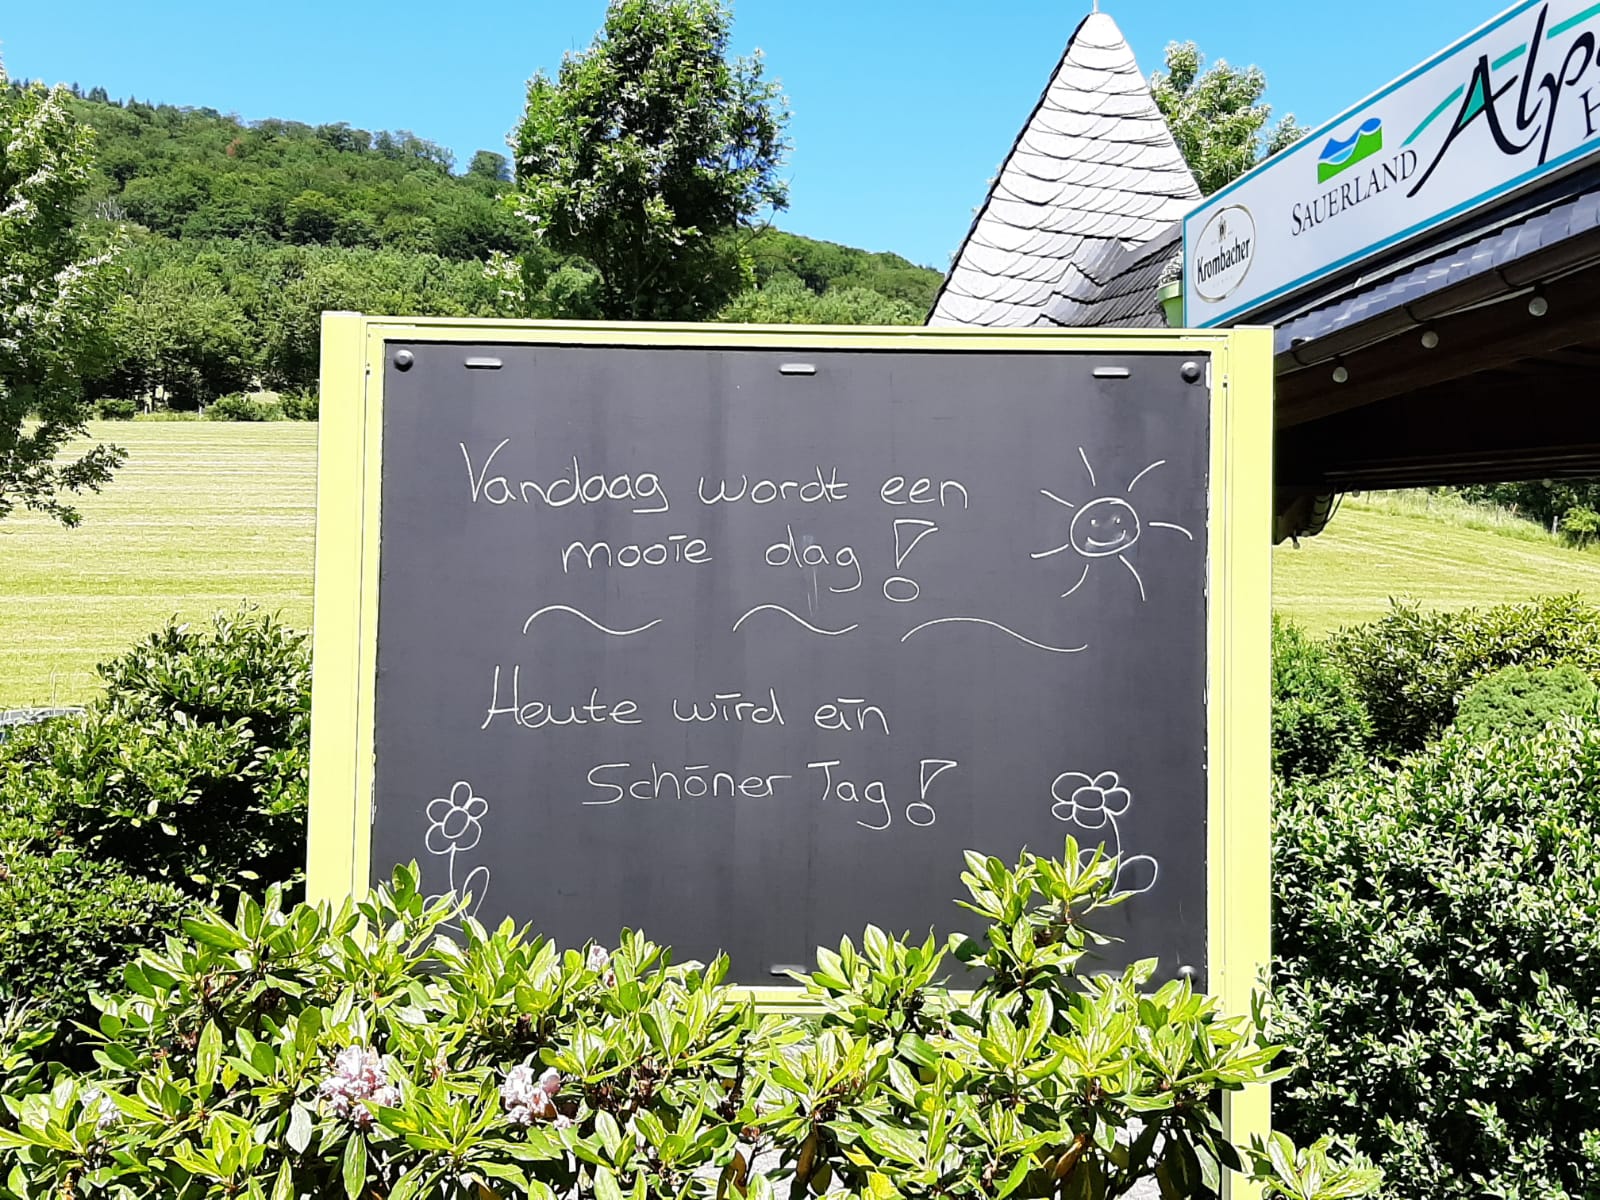 SAUERLAND
Krombacher
Vandaag wordt een
mooie dag!
Heute wird ein
Schöner Tag!